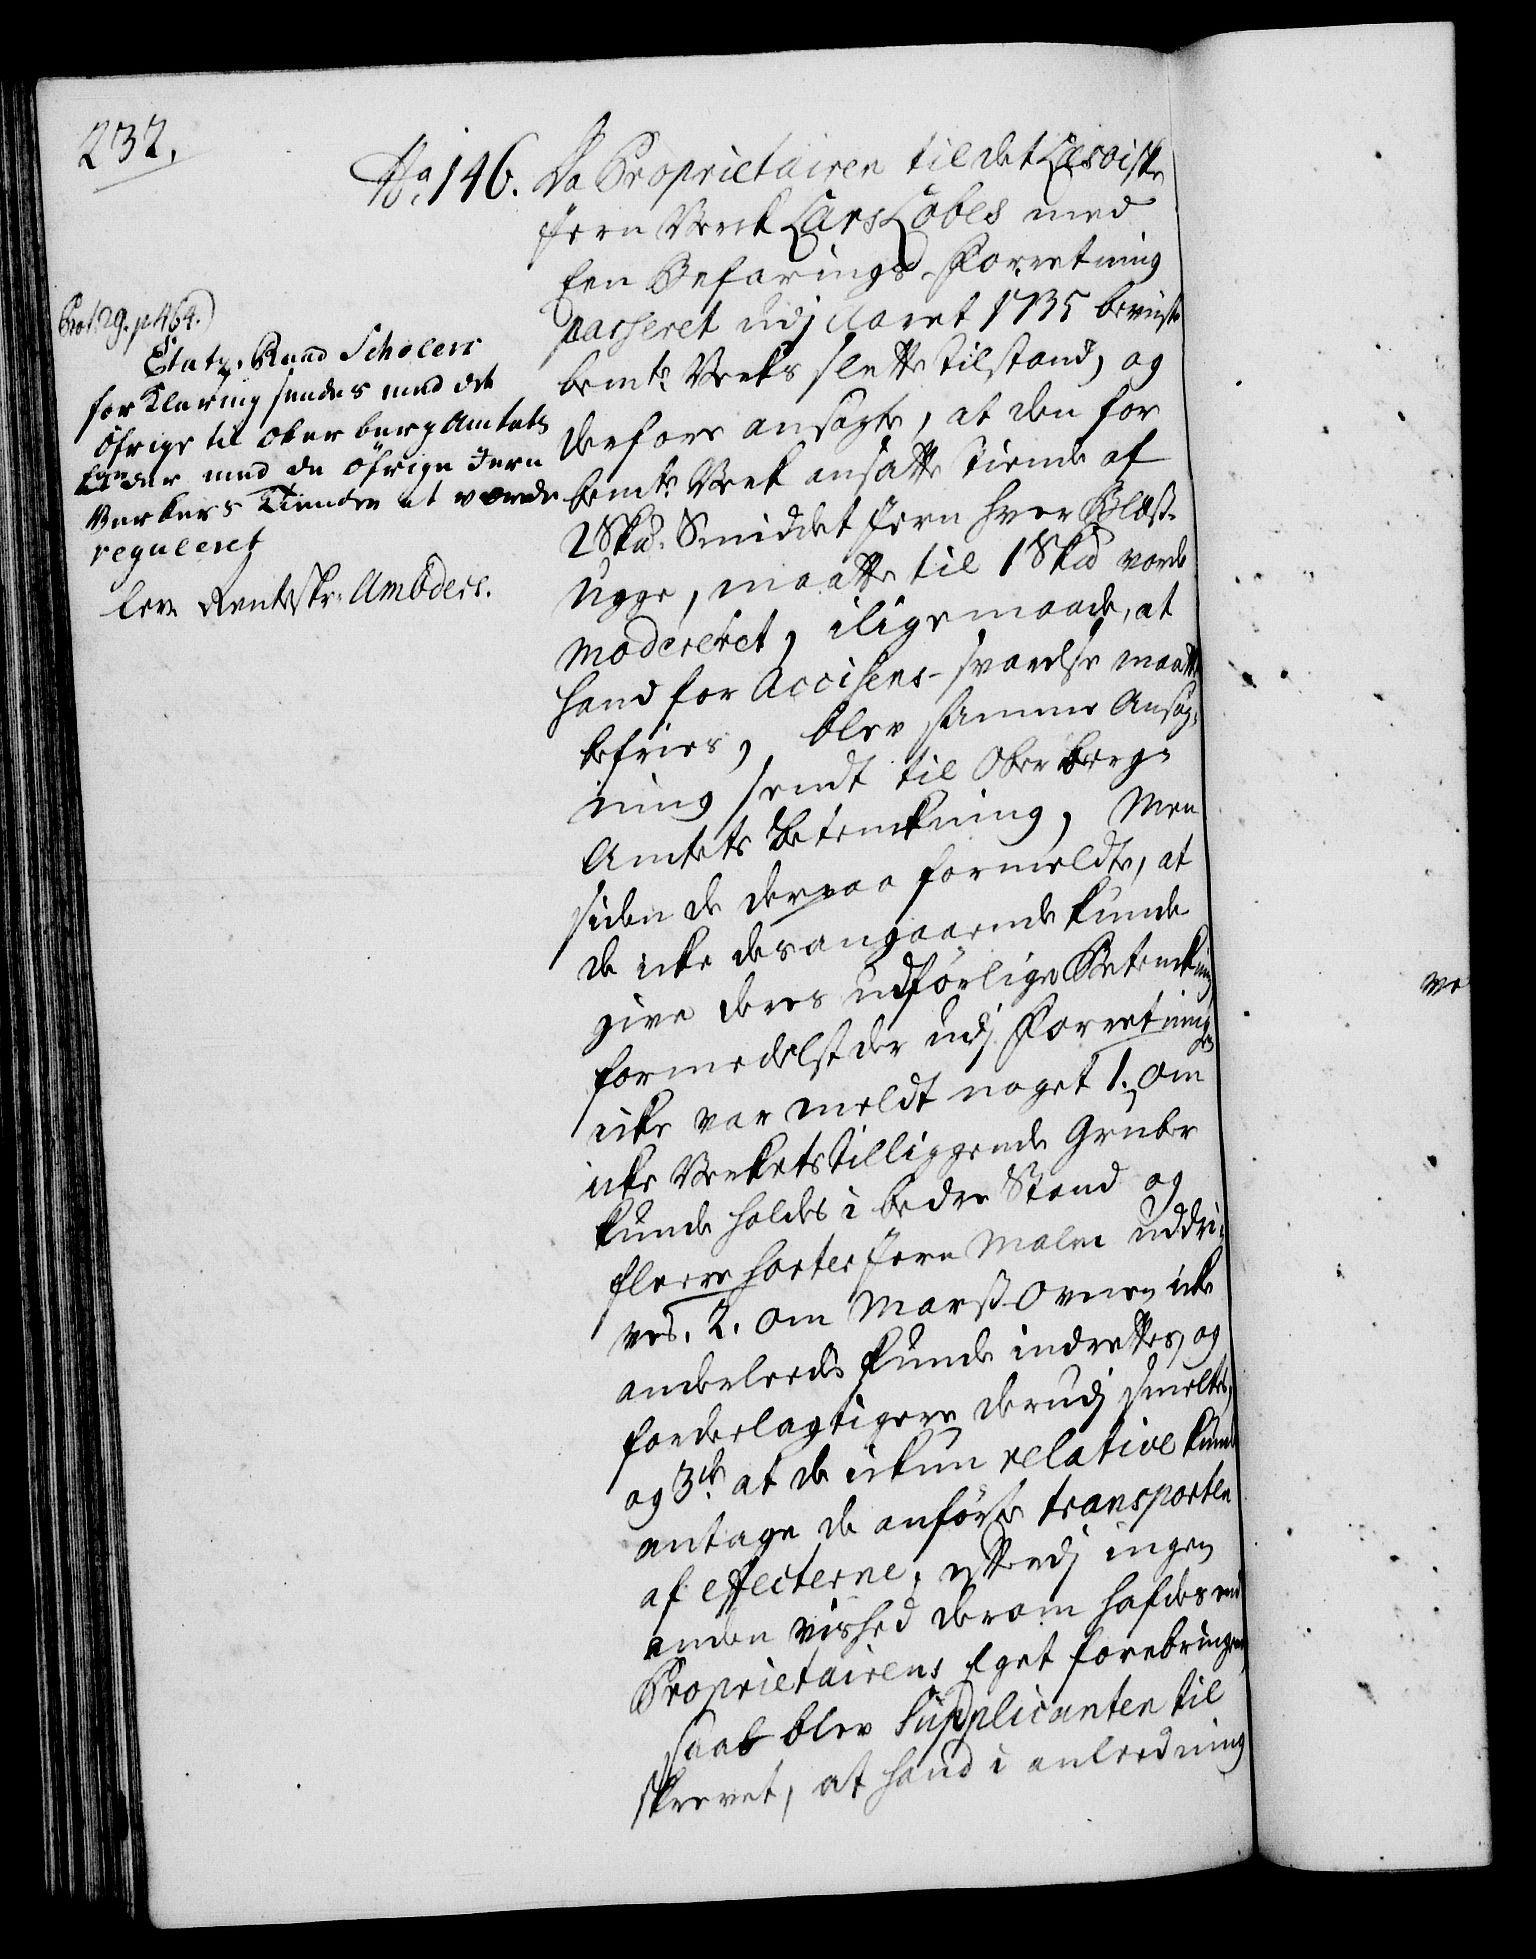 232.
No. 146. Da Proprietairen til det Læsøiske
Jern Verk Lars Lobes med
Een Befarings-Forretning
passeret udj Aaret 1735 beviiste
bemte Verks slette tilstand, og
derfore ansøgte, at den for
bemte Verk ansatte Tiende af
2 Skd. Smiddet Jern hver Blæst-
Ugge, maatte til 1 Skd vorde
modereret, iligemaade, at
hand for Accisens svarelse maatte
befries, blev samme Ansøg-
ning sendt til Ober berg-
Amtets Betenkning, Men
siden de derpaa formeldte, at
de icke desangaaende kunde
give deres udførlige Betenkning
formedelst der udj Forretningen
icke var meldt noget 1. om
icke Verkets tilliggende Gruber
kunde holdes i bedre Stand og
fleere sorter Jern Malm uddri-
ves. 2. om Mass-Ovnen icke
anderleedes kunde indrettes, og
forderlagtigere derudj smeltes,
og 3de at de ickun relative kunde
antage de anførte transporten
af effecterne, efterdj ingen
anden vished derom hafdes end
Proprietairens Eget forebringende
saa blev Supplicanten til
skrevet, at hand i anleedning
Prot. 29. p. 464.)
Etatz-Raad Schølers
forKlaring sendes med det
öfrige til Ober berg Amtets
med de öfrige Jern
Verkers Tiender at vorde
reguleret
lev. Rentskr: Ambders.